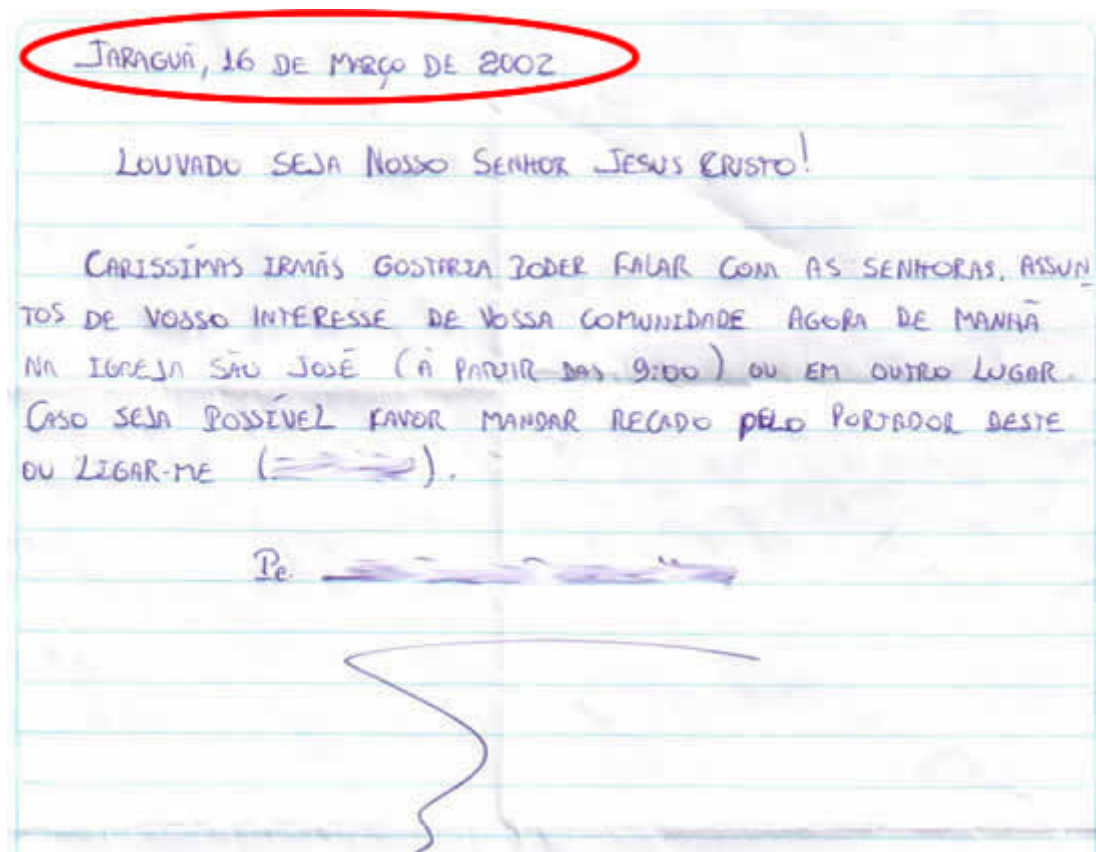 JARAGUÁ, 16 DE MARÇO DE 2002
LOUVADO SEJA NOSSO SENHOR JESUS CRISTO!
CARISSÍMAS IRMÃS GOSTARIA PODER FALAR COM AS SENHORAS, ASSUN
TOS DE VOSSO INTERESSE DE VOSSA COMUNIDADE AGORA DE MANHÃ
NA IGREJA SÃO JOSÉ (À PARTIR DAS 9:00) OU EM OUTRO LUGAR.
CASO SEJA POSSÍVEL FAVOR MANDAR RECADO PELO PORTADOR DESTE
OU LIGAR-ME ( ).
Pe.